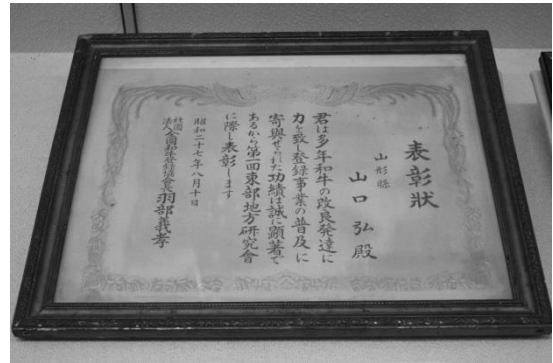 表彰狀
山形縣
山口弘殿
君は多年和牛の改良発達に
力を致し登録事業の普及に
寄與せられた功績は誠に顕著で
あるから第一回東部地方研究會
に際し表彰します
昭和二十七年八月十日
社団
法人全國和牛登録協會長羽部義孝